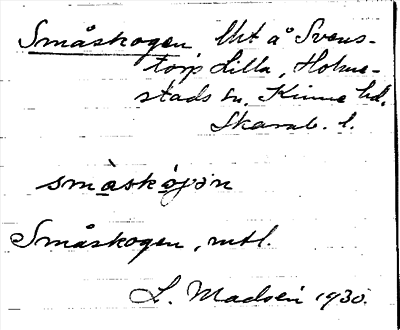 Småskogen, Uht å Svens-
torp Lilla, Holme-
stads sn. Kinne hd.
Skarab. l.
småskó̱gən
Småskogen, mtl.
L. Madsén 1930.